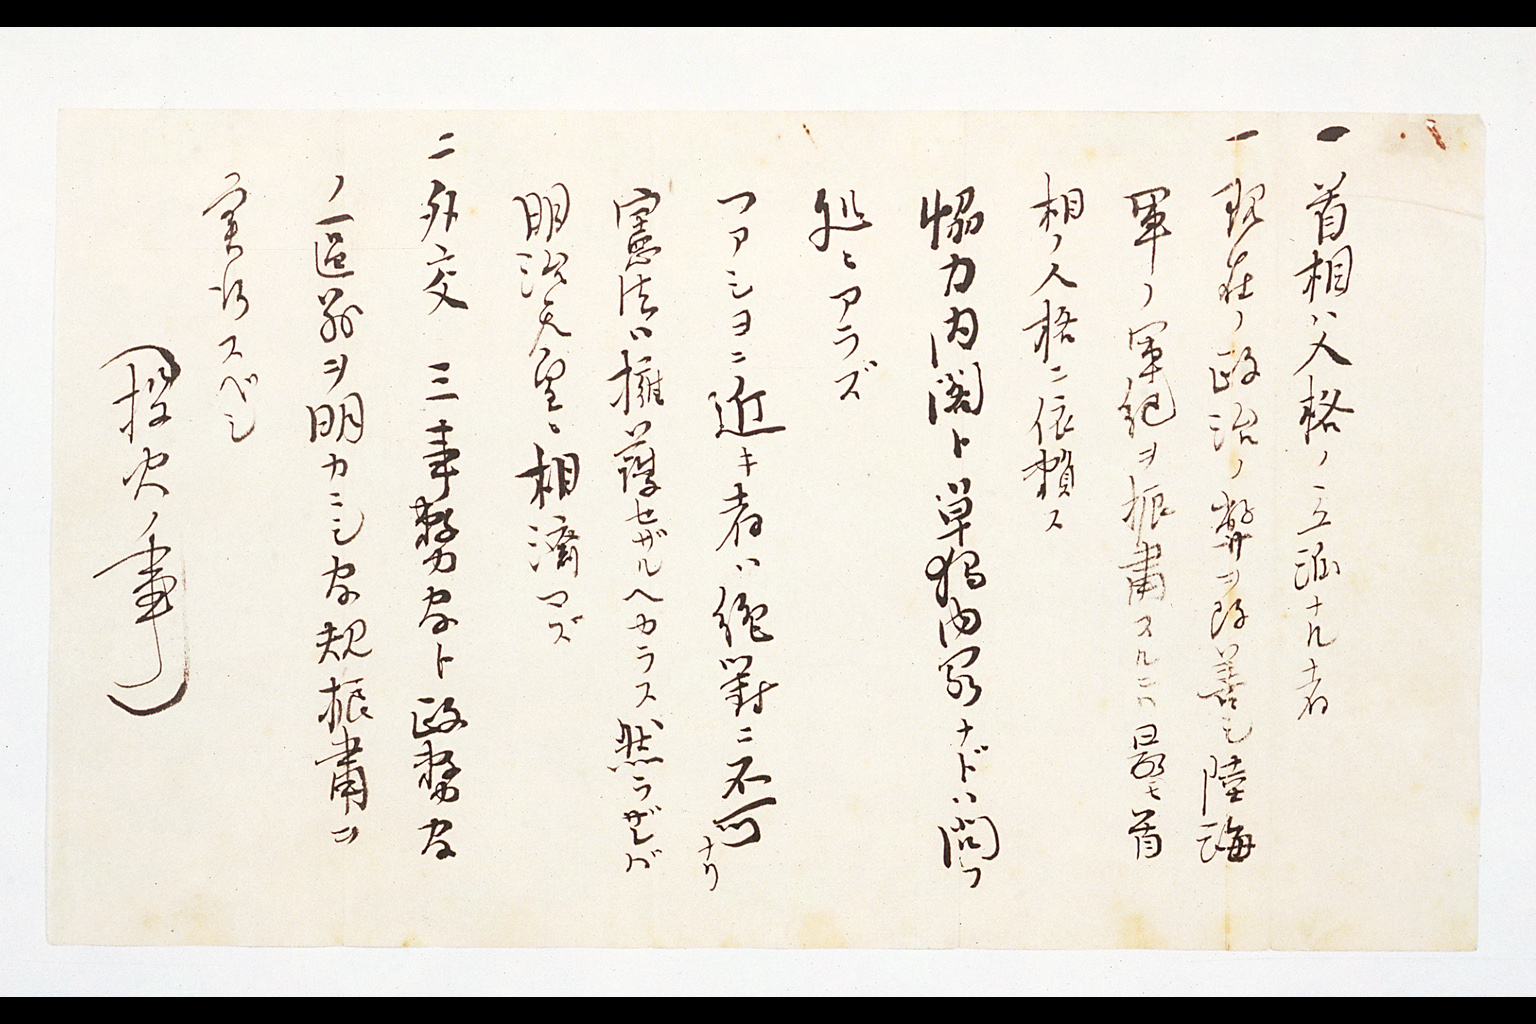 一 首相ハ人格ノ立派ナル者
一 現在ノ政治ノ弊ヲ改善シ陸海
軍ノ軍紀ヲ振粛スルニハ最モ首
相ノ人格ニ依頼ス
協力内閣ト単独内閣ナドハ問フ
処ニアラズ
フアショニ近キ者ハ絶對ニ不可ナリ
憲法ハ擁護セザルヘカラス然ラザレバ
明治天皇ニ相濟マズ
二外交 三事務官ト政務官
ノ区別ヲ明カニシ官規振粛ヲ
実行スベシ
(投火ノ事)